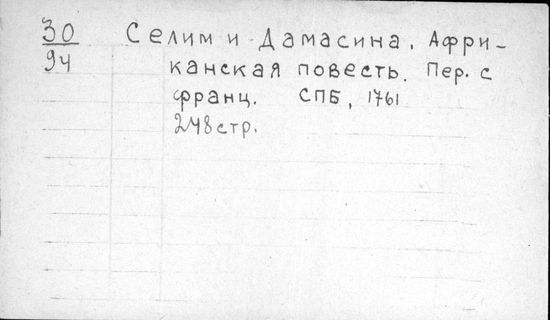 30 Селим и Дамасина. Афри-
94 канская повесть. Пер. с
франц. СПБ, 1761
248 стр.